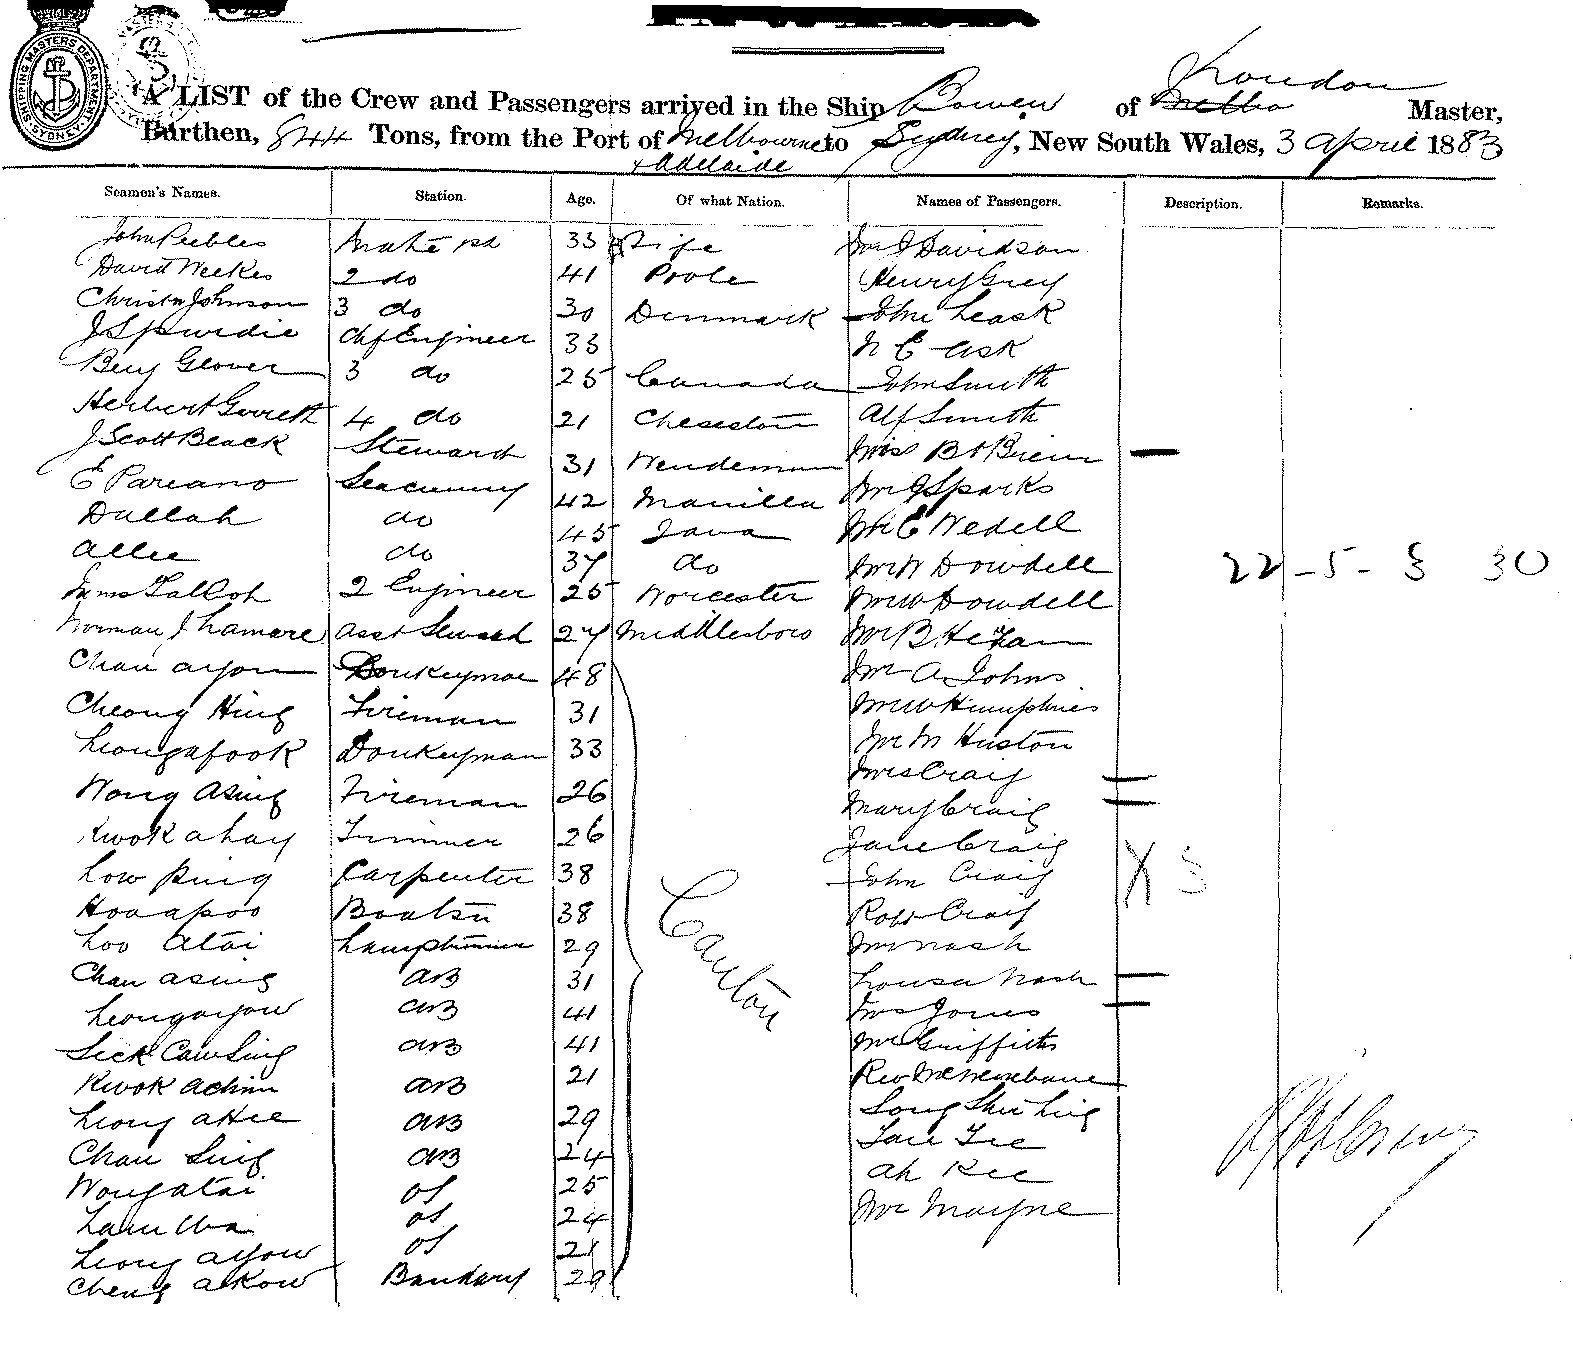 London
A LIST of the Crew and Passengers arrived in the Ship Bowen of Melbo Master,
Burthen, 844 Tons, from the Port of Melbourne to Sydney, New South Wales, 3 April 1883
+ Adelaide
Seamen's Names. Station. Age. Of what Nation. Names of Passengers. Description. Remarks.
John Peebles Mate 1st 33 Fife Mr J Davidson
David Weekes 2 do 41 Poole Henry Grey
Christn Johnson 3 do 30 Denmark John Leask
J S Purdie Chf Engineer 33 N C Ask
Benj Glover 3 do 25 Canada John Smith
Herbert 4 do 21 Alf Smith
J Scott Black Steward 31 Miss B O'Brien
E Pareano Seacunny 42 Manilla Mr J Sparks
Dullah do 45 Java Mr C Wedell
Allie do 37 do Mr W Dowdell 22-5-3 30
2 Engineer 25 Worcester Mr W Dowdell
Norman J Lamare Asst Steward 27 Middlesboro Mr B Hegan
Chan Ayon Donkeyman 48 Mr A Johns
Cheong Hing Fireman 31 Mr W Humphries
Leong Afook Donkeyman 33 Mr M Huston
Wong Asing Fireman 26 Mrs Craig
Kwok Ahay Trimmer 26 Mary Craig
Jane Craig
Low Ping Carpenter 38 Canton John Craig X 3
Hoo Apoo Boatsn 38 Robt Craig
Loo Atai Lamptrimmer 29 Mr Nash
Chan Asing AB 31 Lousa Nash
Leong Ayow AB 41 Mrs Jones
Seek Caw Sing AB 41 Mr Griffiths
Kwok Achim AB 21 Rev
Leong Ahee AB 29 Long Shu Ling
Chan Sing AB 24
Wong Atai OS 25 Ah Kee
Lam Wa OS 24 Mr Mayne
Leong Ayow OS 21
Cheng Akow Bandary 29